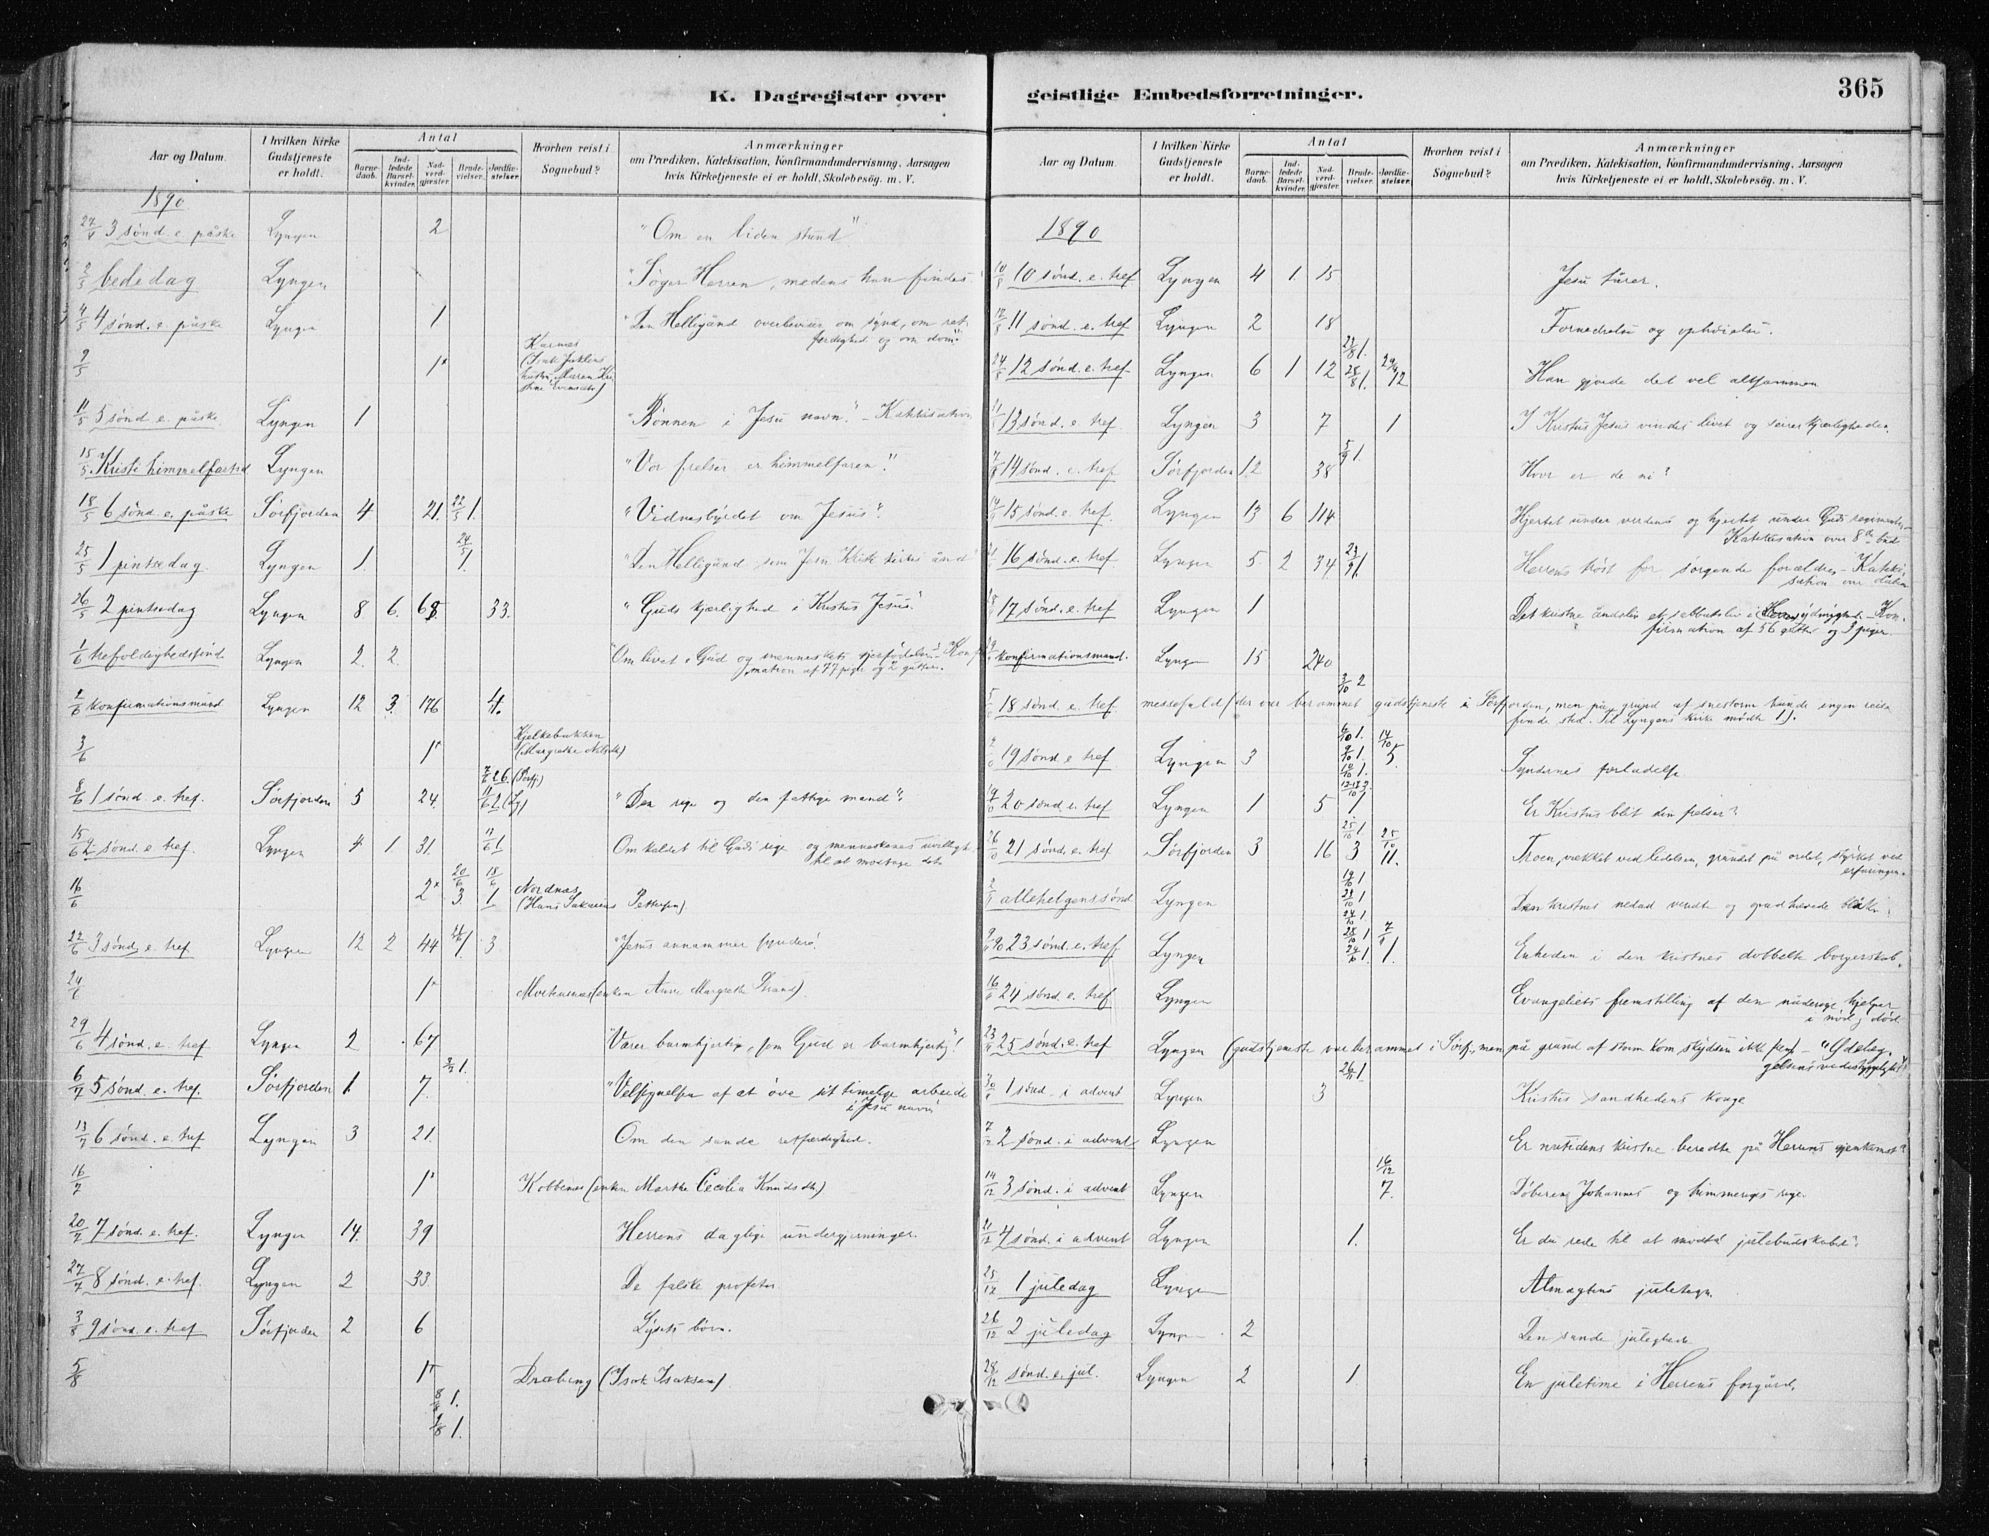 K. Dagregister over
Aar og Datum.
I hvilken Kirke Gudstjeneste er holdt.
Antal
Barnedaab.
Indledede Barselkvinder.
Nadverdgjæster.
Brudevielser.
Jordfæstelser.
Hvorhen reist i Sognebud?
Anmærkninger
om Prædiken, Katekisation, Konfirmandundervisning, Aarsagen
hvis Kirketjeneste ei er holdt, Skolebesøg. m. V.
1890
27/4 3 sønd. e. påske Lyngen 2 "Om en liden stund"
2/5 bededag Lyngen "Søger Herren, medens han findes
4/5 4 sønd. e. påske Lyngen 1 "Den Helligånd overbeviser om synd, om ret-
færdighed og om dom."
9/5 1* Karnæs
11/5 5 sønd e. påske Lyngen 1 "Bønnen i Jesu navn." - Katekisation
15/5 Kristi himmelfartsd Lyngen "Vor frelser er himmelfaren."
18/5 6 sønd. e. påske Sørfjorden 4 21. 22/5 1. "Vidnesbyrdet om Jesus".
25/5 1 pintsedag Lyngen 1. 24/5 1. "Den Helligånd som Jesu Kristi kirkes ånd
26/5 2 pintsedag Lyngen 8. 6. 33. "Guds kjærlighed i Kristus Jesus."
1/6 trefoldighedssønd. Lyngen 2 2 "Om livet i Gud og menneskets gjenfødelse" Konf
mation af 77 piger og 2 gutter.
2/6 konfirmationsmand Lyngen 12 3. 176 4.
3/6 1* Kjelkebakken
(Margrethe Nilsdt)
7/6 26. (Sørfj.)
8/6 1 sønd. e. tref. Sørfjorden 5 24. 11/6 2 (Ly) "Den rige og den fattige mand".
15/6 2 sønd. e. tref. Lyngen 4 1 31. 17/6 1 Om kaldet til Guds rige og menneskenes uvillighed
til at modtage det
16/6 2* 20/6 3. 18/6 1 Nordnæs
(Hans Pettersen)
22/6 3 sønd. e. tref. Lyngen 12 2 44 1. 3 "Jesus annammer syndere".
24/6 1* (enken Ane Margrethe
29/6 4 sønd. e. tref Lyngen 2 67 "Værer barmhjertige, som Gud er barmhjertig"!
6/7 5 sønd. e. tref. Sørfjorden 1. 7. 1. "Velsignelsen af at øve sit timelige arbeide
i Jesu navn"
13/7 6 sønd. e. tref Lyngen 3 21. Om den sande retfærdighed.
16/7 1* (enken Marthe Cecilia Knudsdt)
20/7 7 sønd. e. tref. Lyngen 14. 39 Herrens daglige undergjerninger.
27/7 8 sønd. e. tref. Lyngen 2 33 De falske profeter.
3/8 9 sønd. e. tref Sørfjorden 2 6 Lysets børn.
5/8 1* (Isak Isaksen)
1.
1.
geistlige Embedsforretninger.
365
Aar og Datum.
I hvilken Kirke Gudstjeneste er holdt.
Antal
Barnedaab.
Indledede Barselkvinder.
Nadverdgjæster.
Brudevielser.
Jordfæstelser.
Hvorhen reist i Sognebud?
Anmærkninger
om Prædiken, Katekisation, Konfirmandundervisning, Aarsagen
hvis Kirketjeneste ei er holdt, Skolebesøg. m. V.
1890
10/8 10 sønd. e. tref Lyngen 4 1 15 Jesu tårer.
11 sønd. e. tref Lyngen 2 18 Fornedrelse og ophøielse.
24/8 12 sønd. e. tref Lyngen 6 1 12 1. 28/8 1. 12 Han gjorde det vel altsammen
13 sønd. e. tref. Lyngen 3 7 1 I Kristus Jesus vindes livet og seirer kjærligheden.
14 sønd. e. tref Sørfjorden 12 38 5/9 1. Hvor er de ni?
15 sønd. e. tref. Lyngen 13 6 114 Hjertet under verdens og hjertet under Guds regimente -
Katekisation over 8de bud
16 sønd. e. tref Lyngen 5 2 34 1. Herrens trøst for sørgende forældre - Kateki-
sation om dåben
17 sønd. e. tref Lyngen 1 Det kristne åndsliv et i ydmyghed - Kon-
firmation af 56 gutter og 3 piger.
konfirmationsmand. Lyngen 15 240
3/10 2
18 sønd. e. tref. messefald (der var berammet gudstjeneste i Sørfjorden, men på grund af snestorm kunde ingen reise
finde sted. Til Lyngens kirke mødte 1).
19 sønd. e. tref Lyngen 3 1. 1. 1. 14/10 5. Syndernes forladelse
20 sønd. e. tref Lyngen 1 5 1 Er Kristus blit din frelser?
26/10 21 sønd. e. tref. Sørfjorden 3 16 25/10 1 3 25/10 11. Troen, vækket ved lidelsen, grundet på ordet, styrket ved
erfaringen.
allehelgenssønd Lyngen
23 sønd. e. tref. Lyngen 1. Enheden i den kristnes dobbelte borgerskab.
16/11 24 sønd. e. tref Lyngen Evangeliets fremstilling af den nåderige hjelper
i nød og død
23/11 25 sønd. e. tref Lyngen (gudstjeneste var berammet i Sørfj., men på grund af storm kom skydsen ikke frem) - "Ødelæg-
gelsens vederstyggelighed"
30/11 1 sønd. i advent Lyngen 3 26/11 1 Kristus sandhedens konge
7/12 2 sønd. i advent Lyngen Er nutidens kristne beredte på Herrens gjenkomst?
14/12 3 sønd. i advent Lyngen 16/12 7. Døberen Johannes og himmeriges rige.
21/12 4 sønd. i advent Lyngen 1. Er du rede til at modta julebudskabet?
25/12 1 juledag Lyngen Almagtens juletegn
26/12 2 juledag Lyngen 2 Den sande juleglæde
28/12 sønd. e. jul. Lyngen 2 1. En juletime i Herrens forgård.